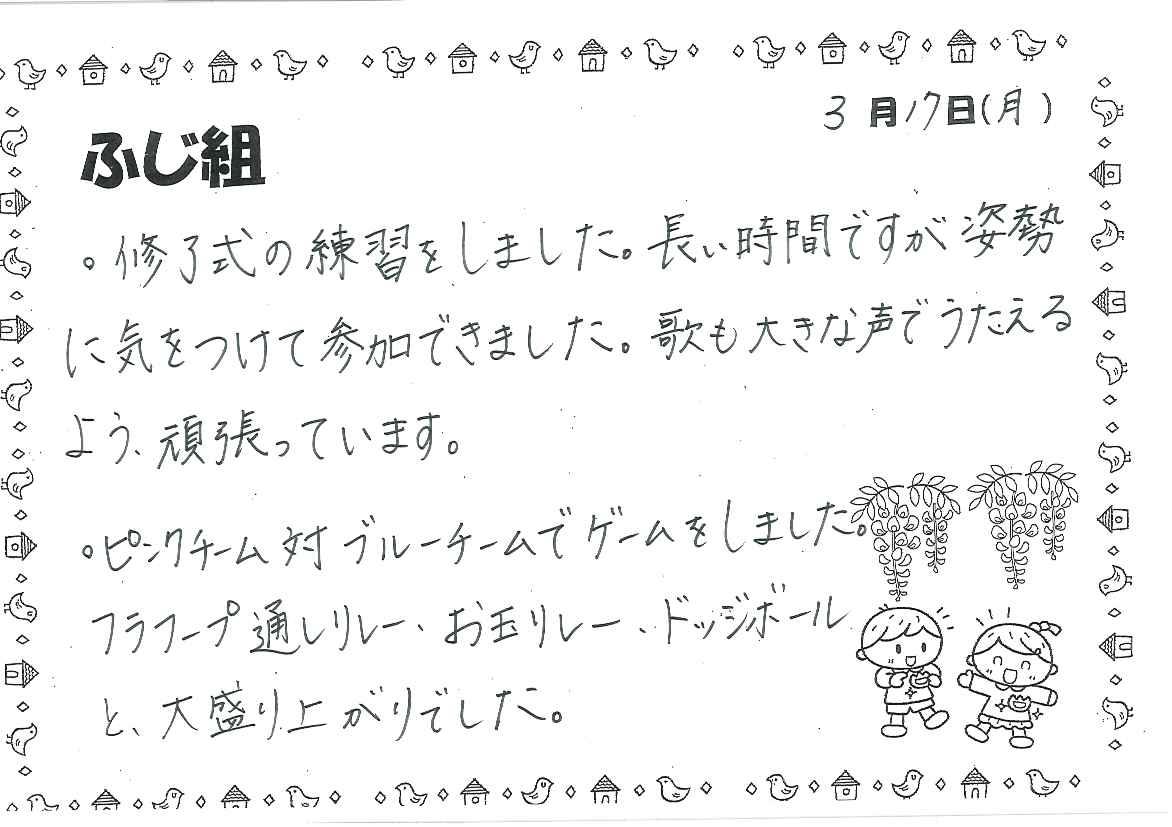 3月17日(月)
ふじ組
。修了式の練習をしました。長い時間ですが姿勢
に気をつけて参加できました。歌も大きな声でうたえる
よう、頑張っています。
。ピンクチーム対ブルーチームでゲームをしました。
フラフープ通しリレー、お玉リレー、ドッジボール
と、大盛り上がりでした。